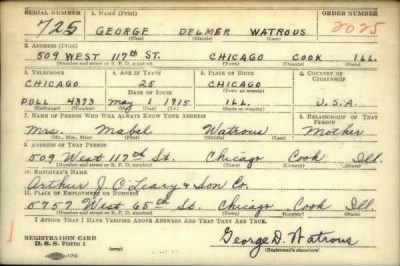 SERIAL NUMBER 1. NAME (Print) ORDER NUMBER
725 GEORGE DELMER WATROUS 2025
(First) (Middle) (Last)
2. ADDRESS (Print)
509 WEST 117th ST. CHICAGO COOK ILL.
(Number and street or R. F. D. number) (Town) (County) (State)
3. TELEPHONE 4. AGE IN YEARS 5. PLACE OF BIRTH 6. COUNTRY OF CITIZENSHIP
CHICAGO 25 CHICAGO
DATE OF BIRTH (Town or county)
PULL 4373 May 1 1915 ILL. U.S.A
(Exchange) (Number) (Mo.) (Day) (Yr.) (State or country)
7. NAME OF PERSON WHO WILL ALWAYS KNOW YOUR ADDRESS 8. RELATIONSHIP OF THAT PERSON
Mrs. Mabel Watrous Mother
(Mr., Mrs., Miss) (First) (Middle) (Last)
9. ADDRESS OF THAT PERSON
509 West 117th St. Chicago Cook Ill.
(Number and street or R. F. D. number) (Town) (County) (State)
10. EMPLOYER'S NAME
Arthur J. O'Leary & Son Co.
11. PLACE OF EMPLOYMENT OR BUSINESS
5757 West 65th St. Chicago Cook Ill.
(Number and street or R. F. D. number) (Town) (County) (State)
I AFFIRM THAT I HAVE VERIFIED ABOVE ANSWERS AND THAT THEY ARE TRUE.
REGISTRATION CARD
D. S. S. Form 1 (over) George D. Watrous
(Registrant's signature)